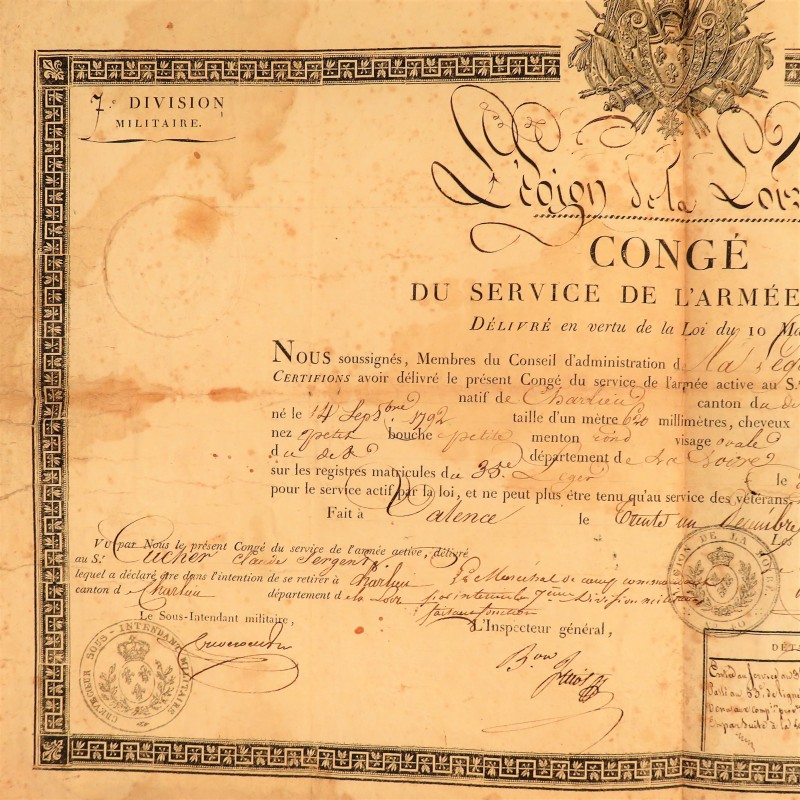 7.e DIVISION
MILITAIRE.
Légion de la Loire
CONGÉ
DU SERVICE DE L'ARMÉE
DÉLIVRÉ en vertu de la Loi du 10 Ma
NOUS soussignés, Membres du Conseil d'administration d la Lég
CERTIFIONS avoir délivré le présent Congé du service de l'armée active au S.
natif de Charlieu canton du d
né le 14 Septbre 1792 taille d'un mètre 620 millimètres, cheveux
nez petit bouche petite menton rond visage ovale
du dt département de La Loire
sur les registres matricules du 35e Léger le
pour le service actif par la loi, et ne peut plus être tenu qu'au service des vétérans.
Fait à Valence le Trente un Décembre
Les
VU par Nous le présent Congé du service de l'armée active, délivré
au S. Cucher Claude Sergent
lequel a déclaré être dans l'intention de se retirer à Charlieu
canton d Charlieu département de la Loire
Le Sous-Intendant militaire,
Le Maréchal de camp commandant
par interim la 7eme Division militaire
faisant fonction
L'Inspecteur général,
Bon
SOUS-INTENDANT MILITAIRE
LÉGION DE LA LOIRE
DÉTA
Entré au service au 3